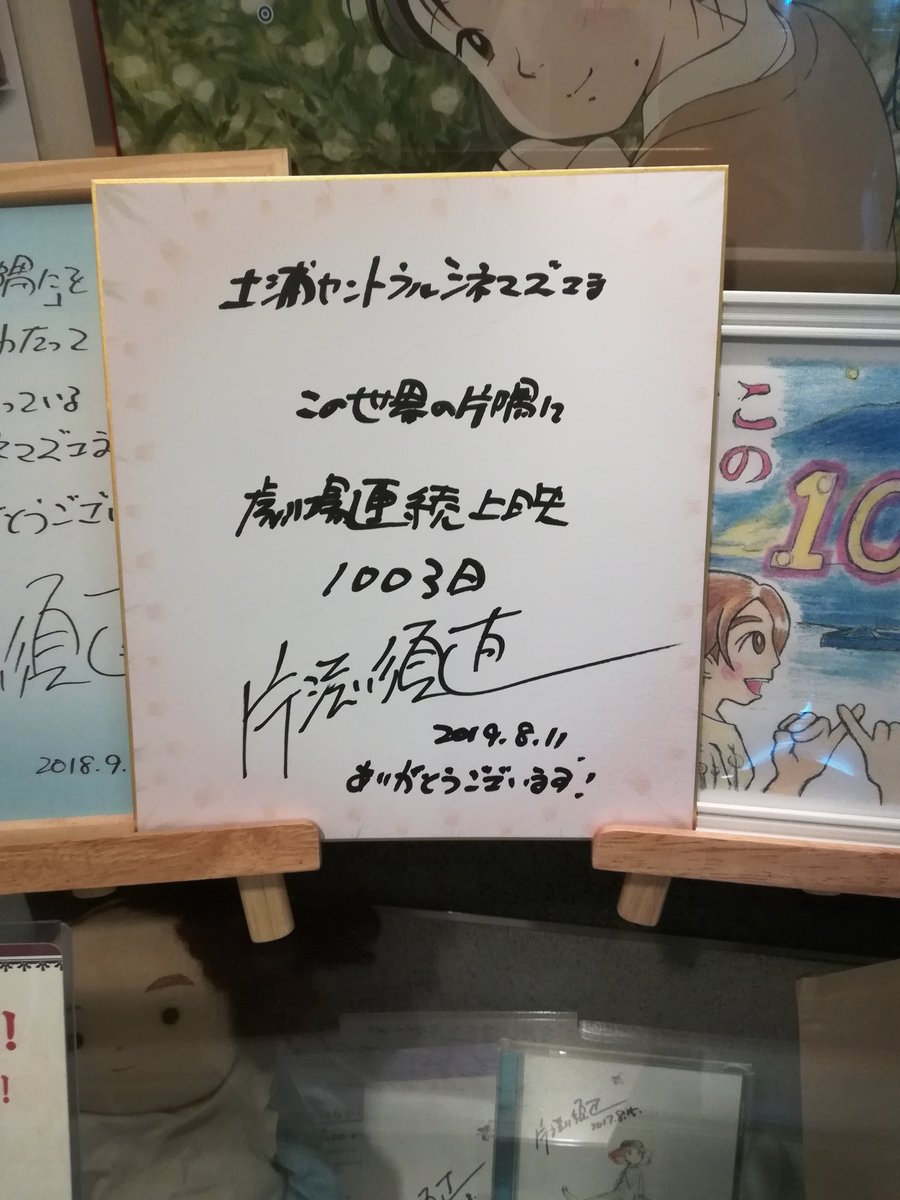 土浦セントラルシネマズさま
この世界の片隅に
劇場連続上映
1003日
片渕須直
2019.8.11
ありがとうございます!
隅に」を
わたって
っている
ネマズさま
とうござい
須直
2018.9.
この
10
!
!
片渕須直
2017.8.15.